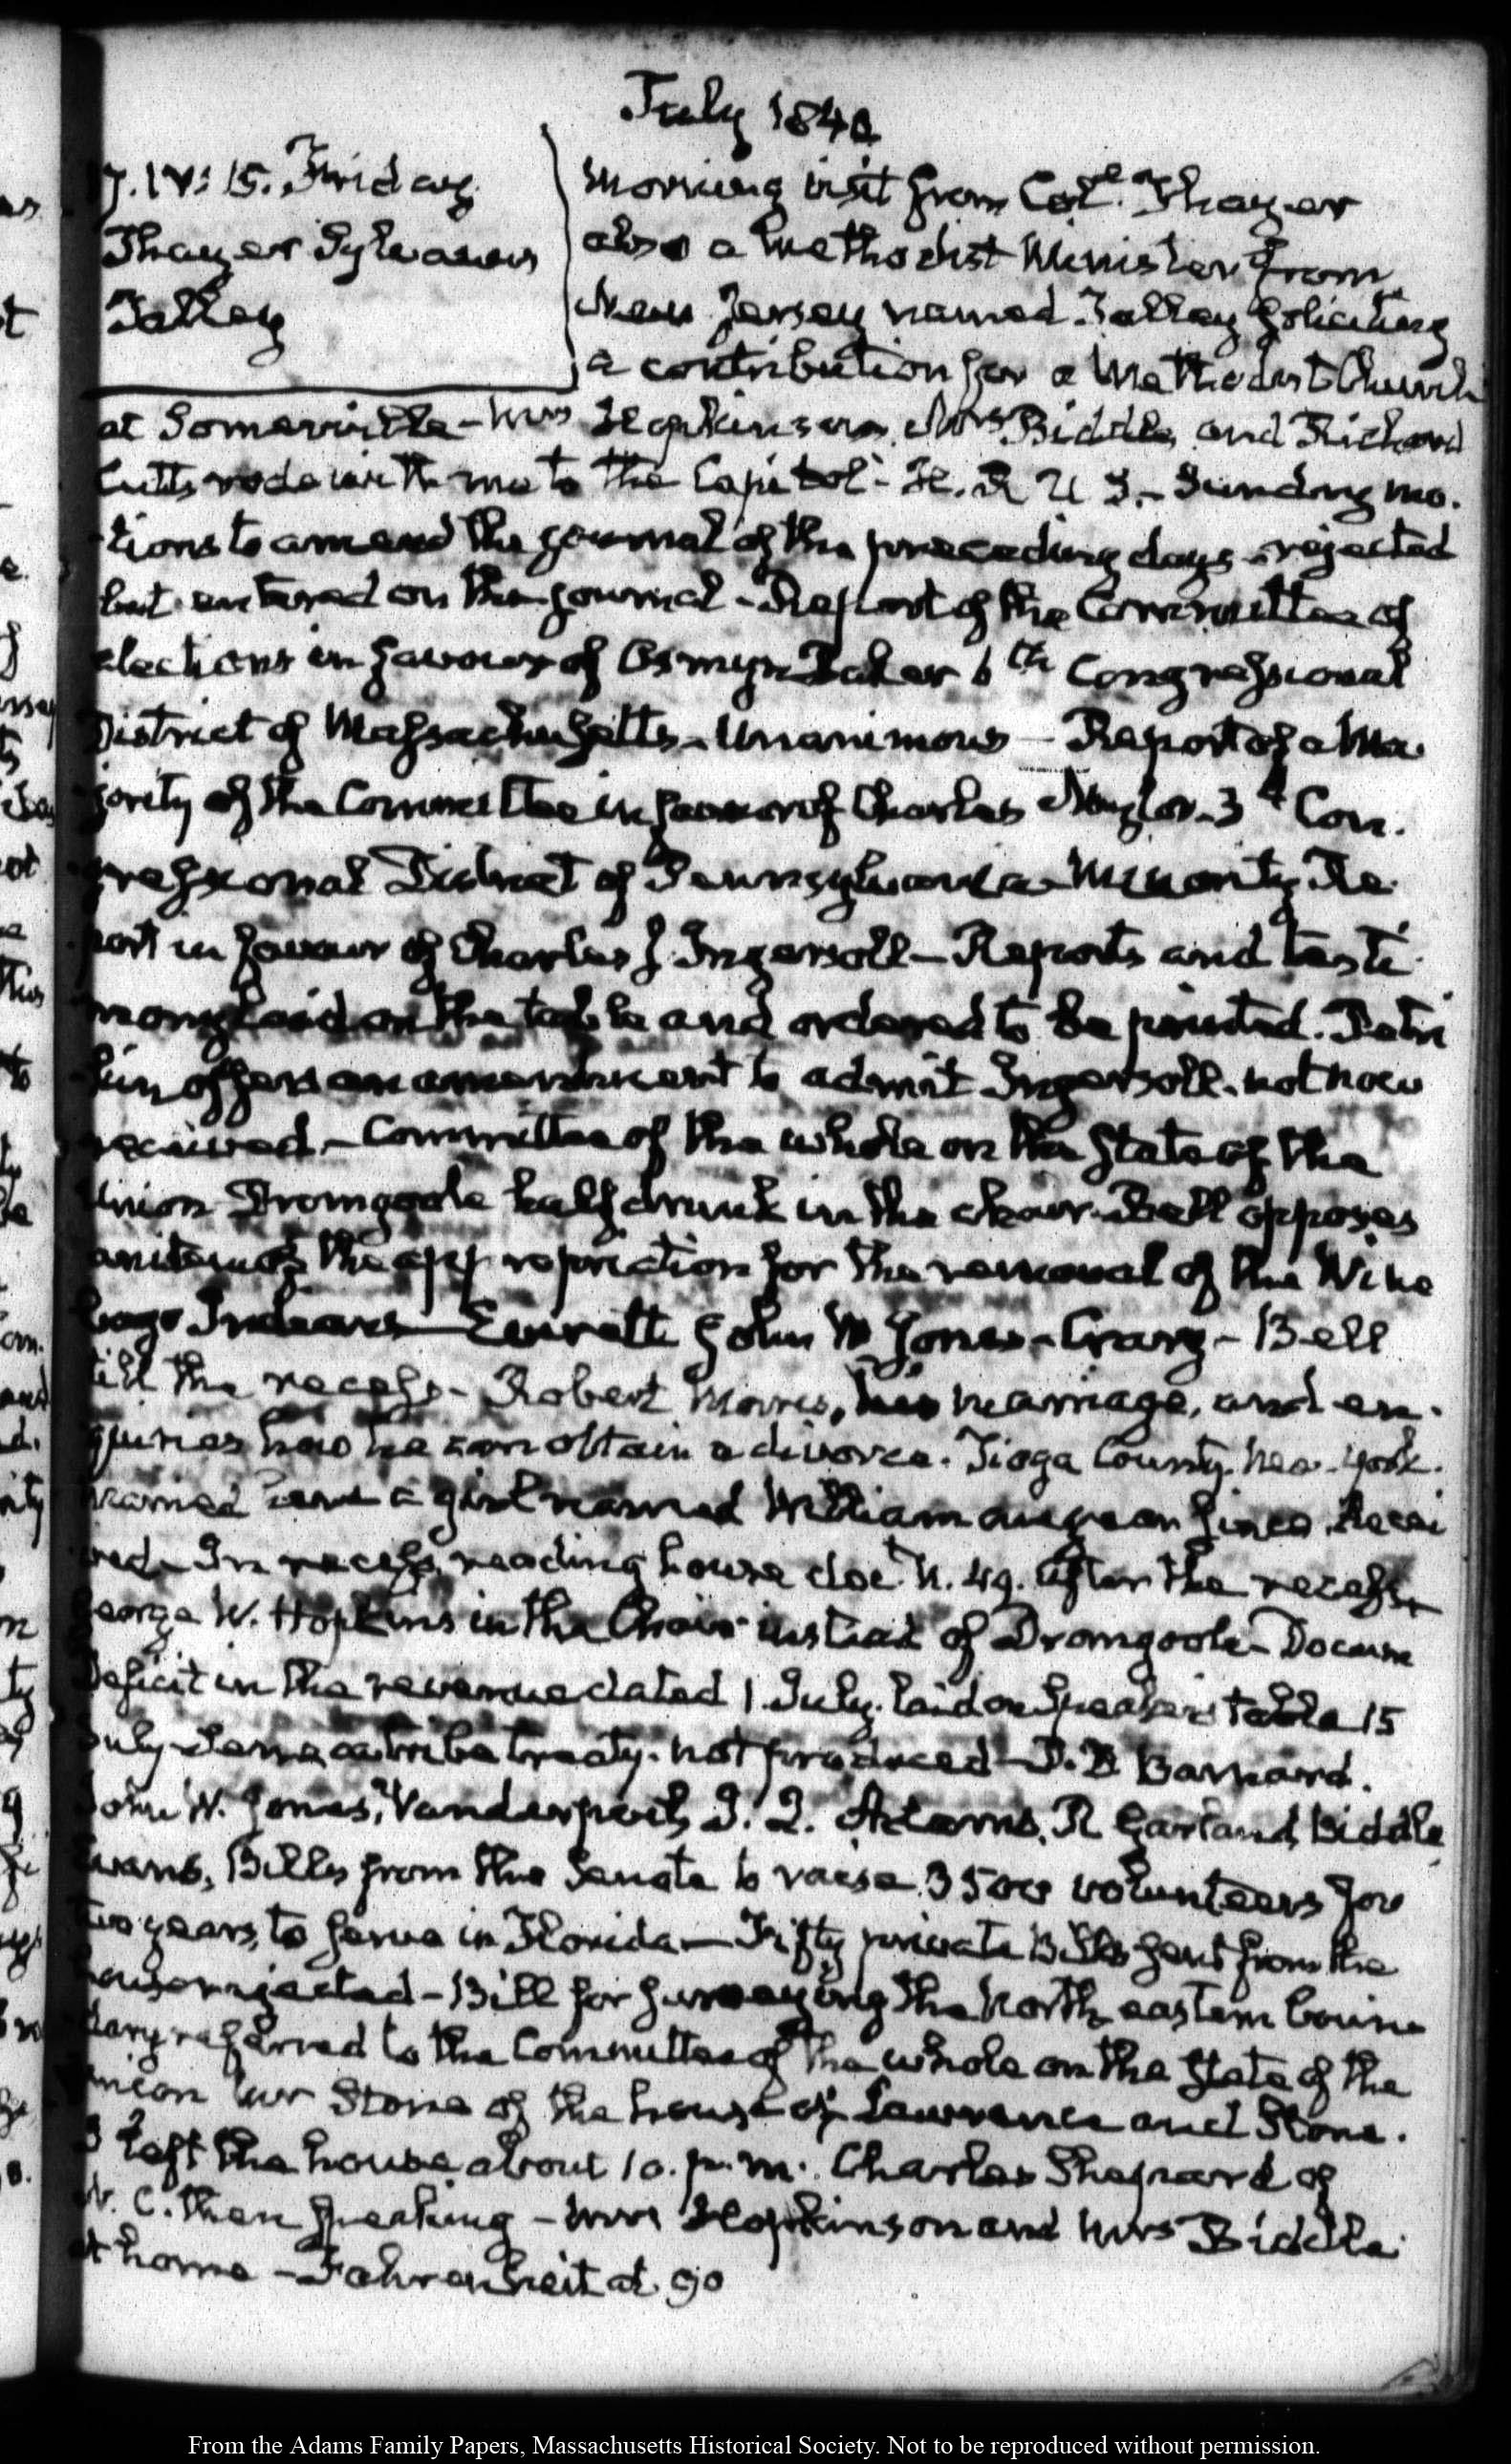 July 1840
17. IV: 15. Friday
Thayer Sylvanus
Talley
Morning visit from Coll. Thayer
also a Methodist Minister from
New Jersey named Talley soliciting
a contribution for a Methodist Church
at Somerville - Mrs Hopkinson, Mrs Biddle, and Richard
Cutts rode with me to the Capitol - H. R U S. - Sundry mo-
tions to amend the journal of the preceding days - rejected
but entered on the journal - Report of the Committee of
elections in favour of Osmyn Baker 6th Congressional
District of Massachusetts - Unanimous - Report of a Ma
jority of the Committee in favour of Charles Naylor - 3d Con-
gressional District of Pennsylvania - Minority Re
port in favour of Charles J. Ingersoll - Reports and testi
mony laid on the table and ordered to be printed. Petri
kin offers an amendment to admit Ingersoll. not now
received. - Committee of the whole on the State of the
Union Dromgoole half drunk in the chair. Bell opposes
an item of the appropriation for the removal of the Wine
bago Indians - Everett John W Jones - Crary - Bell
till the recess - Robert Morris, his marriage, and en-
quiries how he can obtain a divorce. Tioga County. New-York.
married a girl named William a year since
In recess, reading house doct. N. 49. After the recess
George W. Hopkins in the Chair instead of Dromgoole - Docum
Deficit in the revenue dated 1 July. laid on Speaker's table 15
July - Seneca tribe treaty. not produced - D. D Barnard.
John W. Jones, Vanderpoel, J. Q. Adams, R Garland, Biddle
Evans, Bills from the Senate to raise 3500 volunteers for
two years, to serve in Florida - Fifty private Bills sent from the
house rejected - Bill for surveying the North eastern boun
dary referred to the Committee of the whole on the State of the
Union Mr Stone of the house of Lawrence and Stone.
I left the house about 10. p. m. Charles Shepard of
N. C. then speaking - Mrs Hopkinson and Mrs Biddle
at home - Fahrenheit at 90
From the Adams Family Papers, Massachusetts Historical Society. Not to be reproduced without permission.